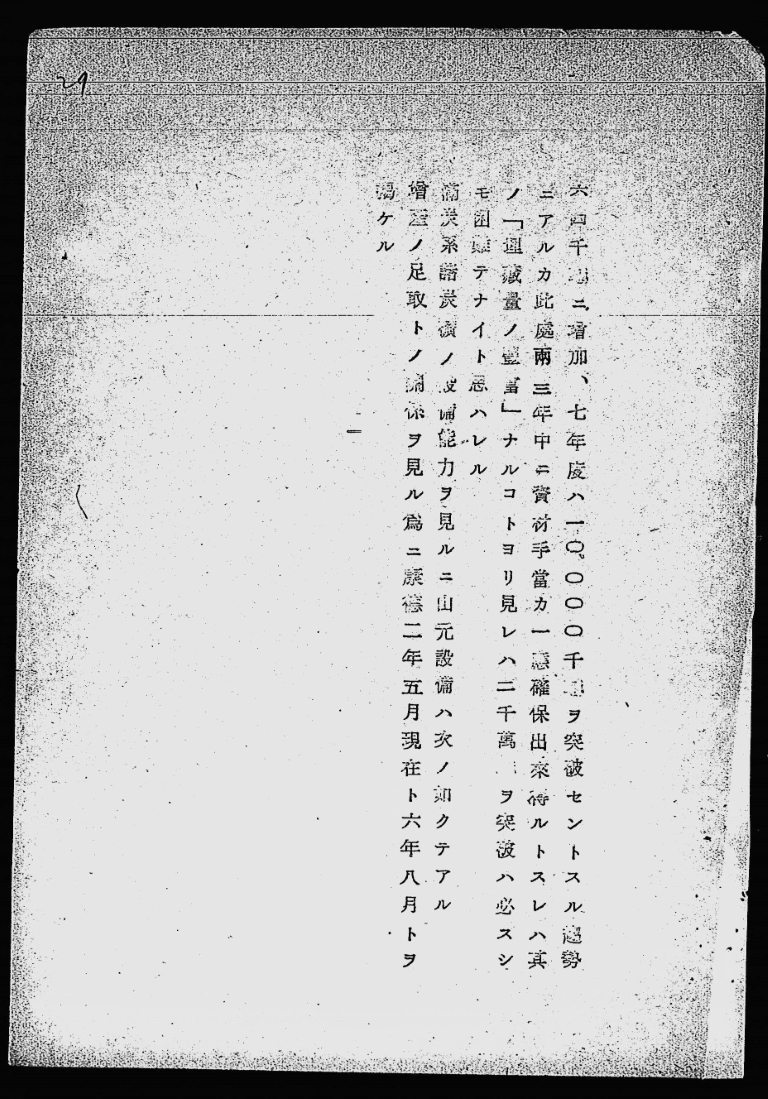 29
六四千瓲ニ増加、七年度ハ一〇、〇〇〇千瓲ヲ突破セントスル趨勢
ニアルカ此處兩三年中ニ資材手當カ一應確保出來得ルトスレハ其
ノ「埋藏量ノ豐富」ナルコトヨリ見レハ二千萬ヲ突破ハ必スシ
モ困難テナイト思ハレル
滿炭系諸炭礦ノ設備能力ヲ見ルニ山元設備ハ次ノ如クテアル
増産ノ足取トノ關係ヲ見ル爲ニ康德二年五月現在ト六年八月トヲ
掲ケル